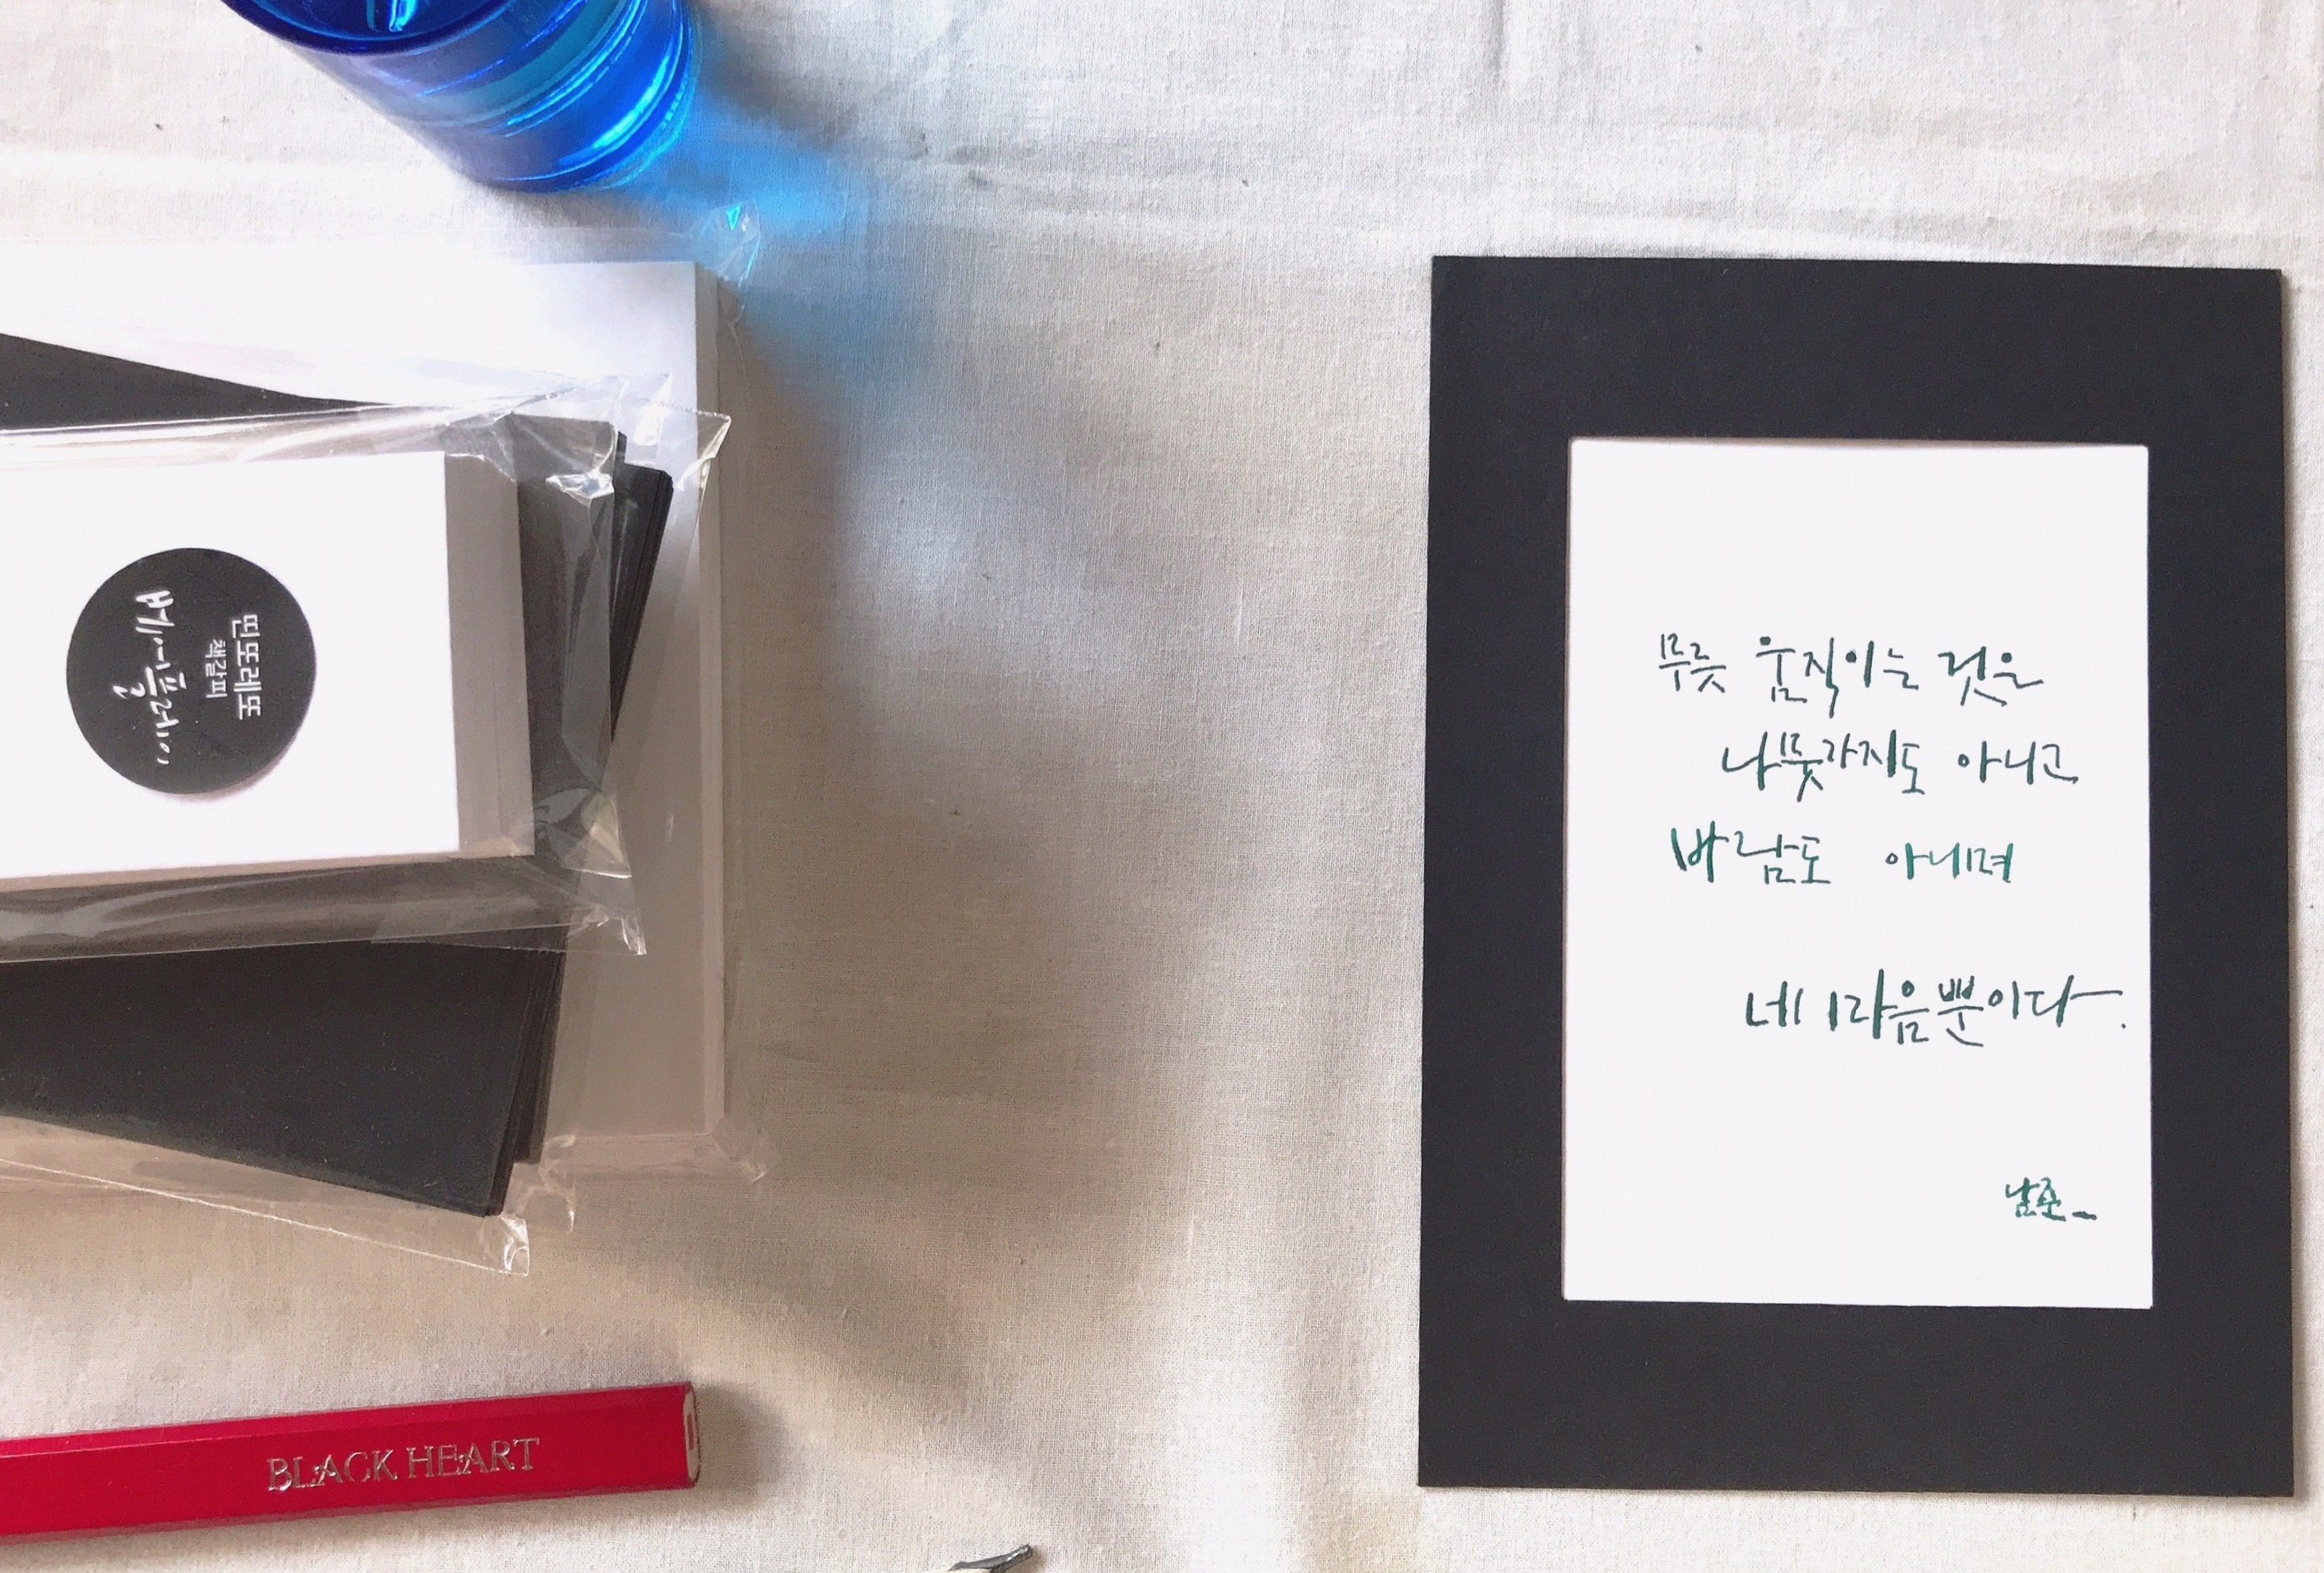 띤또레또
책갈피
베이플레이
BLACK HEART
무릇 움직이는 것은
나뭇가지도 아니고
바람도 아니며
네 마음뿐이다.
남준